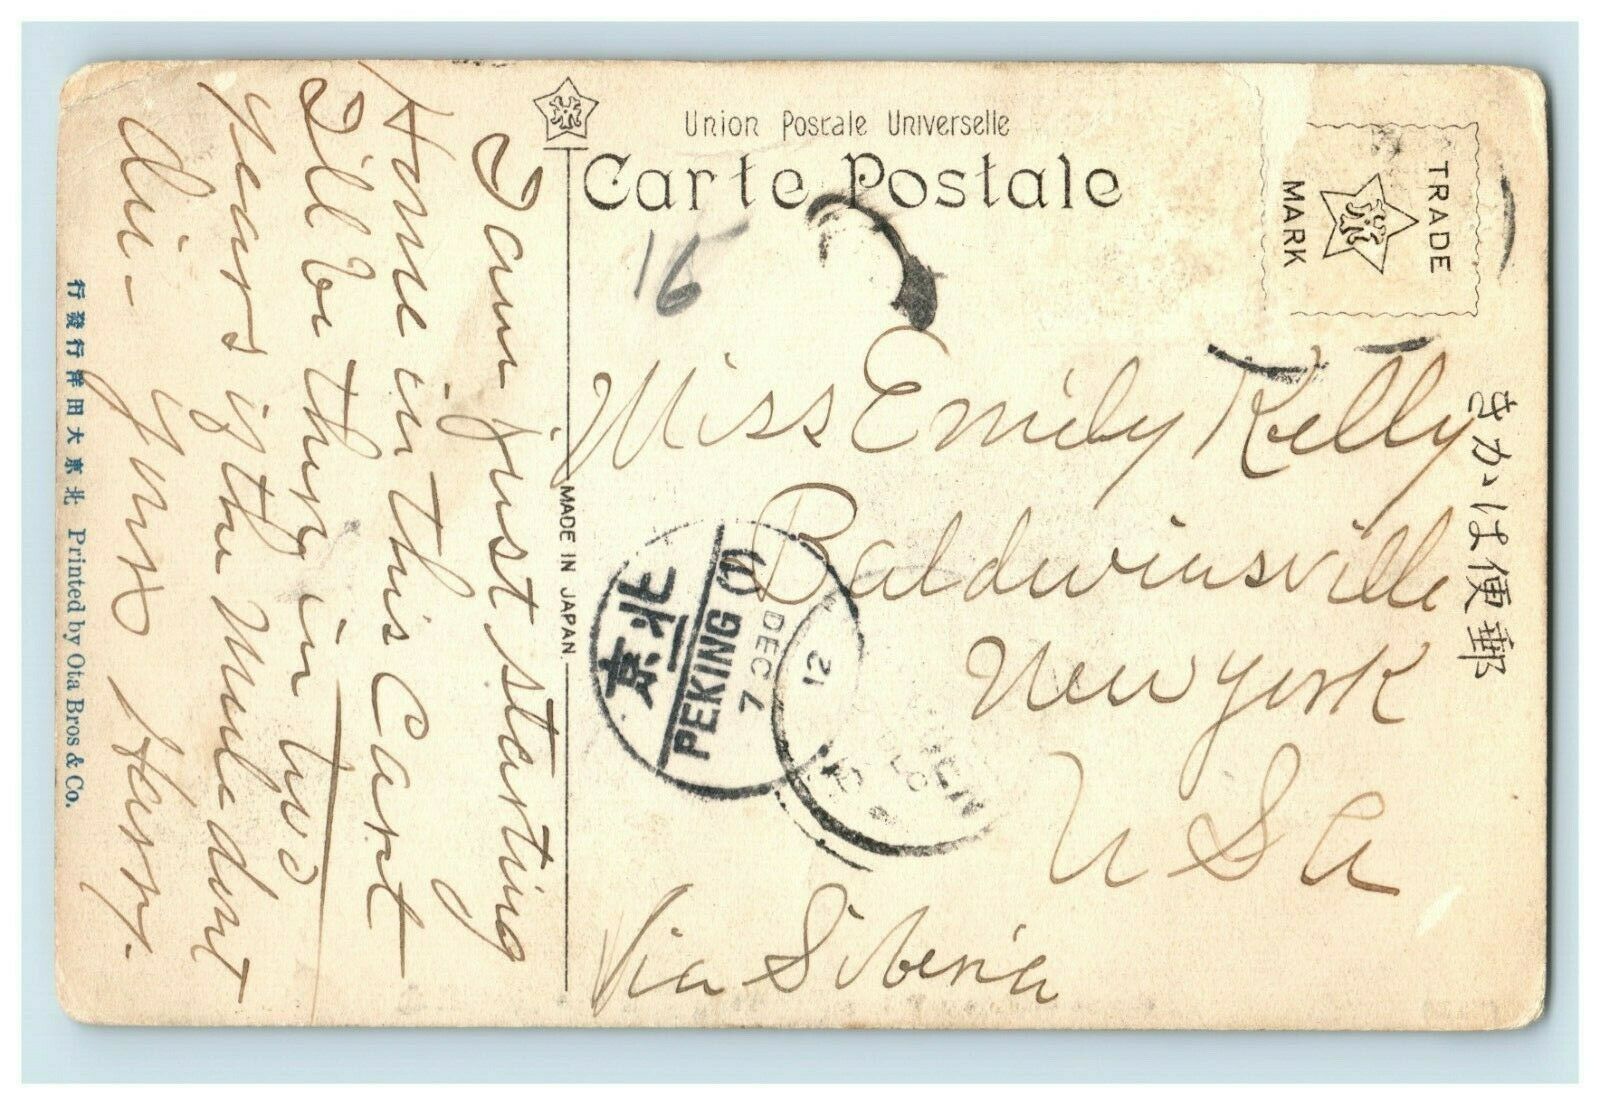 Union Postale Universelle
Carte Postale
TRADE
MARK
きかは便郵
16
I am just starting
Home in this Cart
I'll be there in two
years if the Mule dont
die - yours Harry.
Miss Emily Kelly
Baldwinsville
New York
U S A
Via Siberia
MADE IN JAPAN.
北京
PEKING (1)
7 DEC
12
行發行洋田大京北 Printed by Ota Bros & Co.